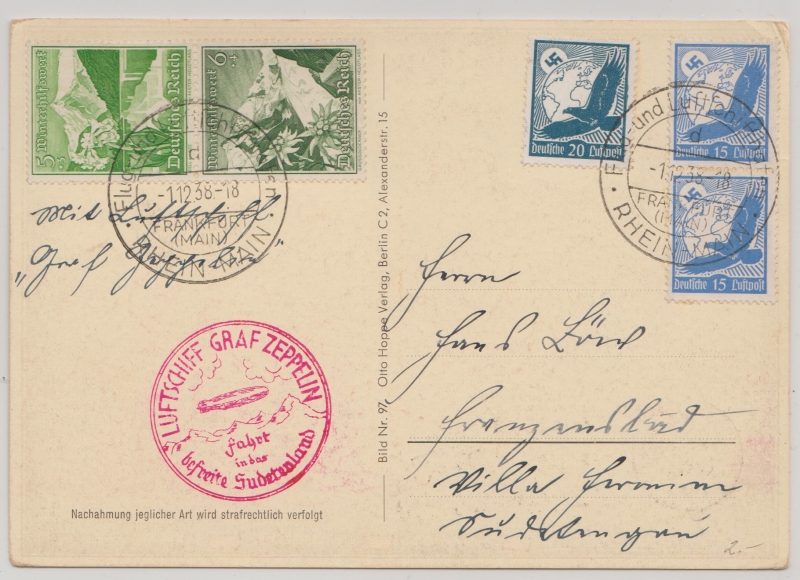 5+3 Winterhilfswerk
Deutsches Reich
6+4 Winterhilfswerk
Deutsches Reich
20
Deutsche Luftpost
15
Deutsche Luftpost
15
Deutsche Luftpost
Flug- und Luftschiffhafen
d
-1.12.38-18
FRANKFURT
(MAIN)
RHEIN-MAIN
Flug- und Luftschiffhafen
d
-1.12.38-18
FRANKFURT
(MAIN)
RHEIN-MAIN
Mit Luftschiff
„Graf Zeppelin"
LUFTSCHIFF GRAF ZEPPELIN
Fahrt
in das
befreite Sudetenland
Nachahmung jeglicher Art wird strafrechtlich verfolgt
Bild Nr. 97 Otto Hoppe Verlag, Berlin C 2, Alexanderstr. 15
Herrn
Hans
Franzensbad
Villa
Sudetengau
2.-